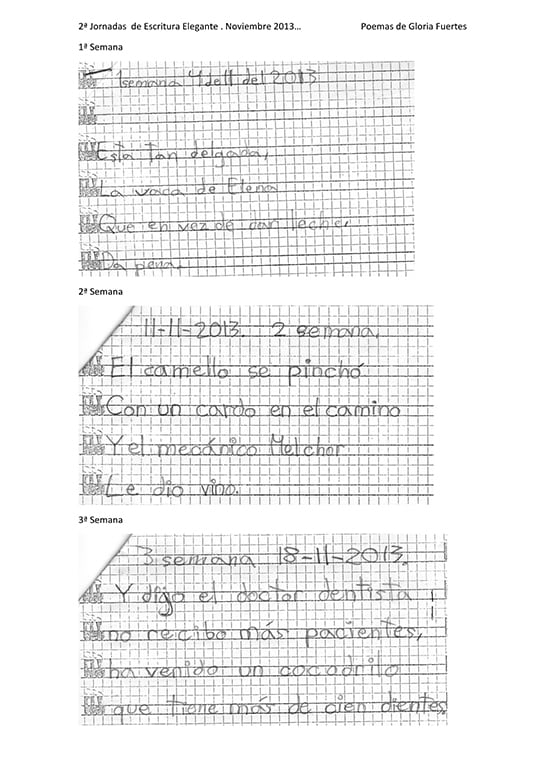 2ª Jornadas de Escritura Elegante . Noviembre 2013... Poemas de Gloria Fuertes
1ª Semana
1 semana 4 de 11 del 2013
Esta tan delgada,
La vaca de Elena
Que en vez de dar leche,
Da pena.
2ª Semana
11-11-2013. 2 semana,
El camello se pinchó
Con un cardo en el camino
Y el mecánico Melchor
Le dio vino.
3ª Semana
3 semana 18-11-2013.
Y dijo el doctor dentista
no recibo más pacientes,
ha venido un cocodrilo
que tiene más de cien dientes,